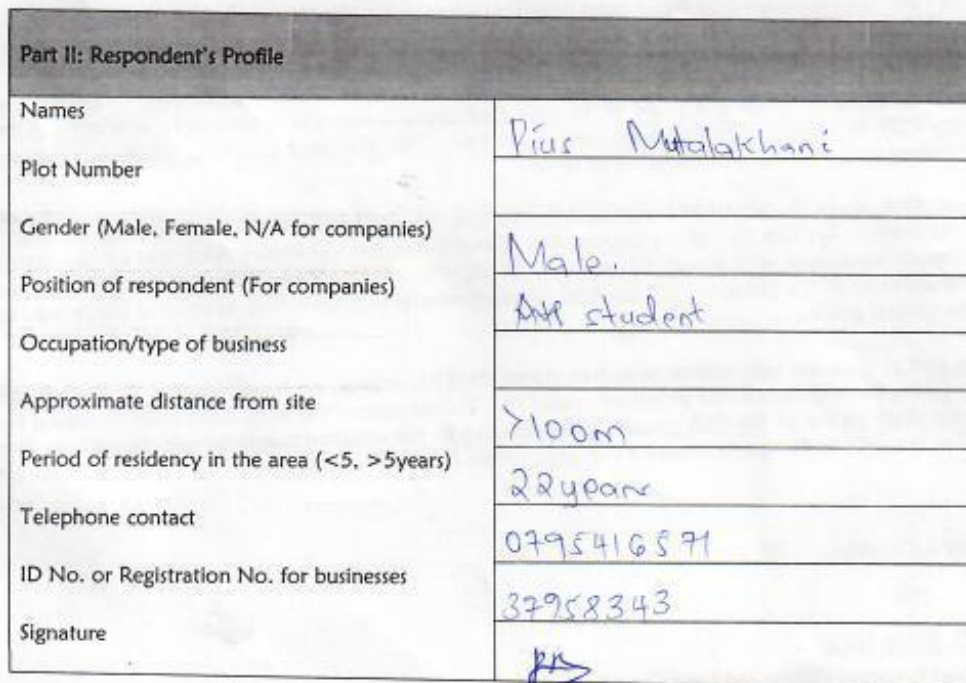 Part II: Respondent's Profile
Names
Pius Mutalakhani
Plot Number
Gender (Male, Female, N/A for companies)
Male.
Position of respondent (For companies)
student
Occupation/type of business
Approximate distance from site
>100m
Period of residency in the area (<5, >5years)
22years
Telephone contact
0795416571
ID No. or Registration No. for businesses
37958343
Signature